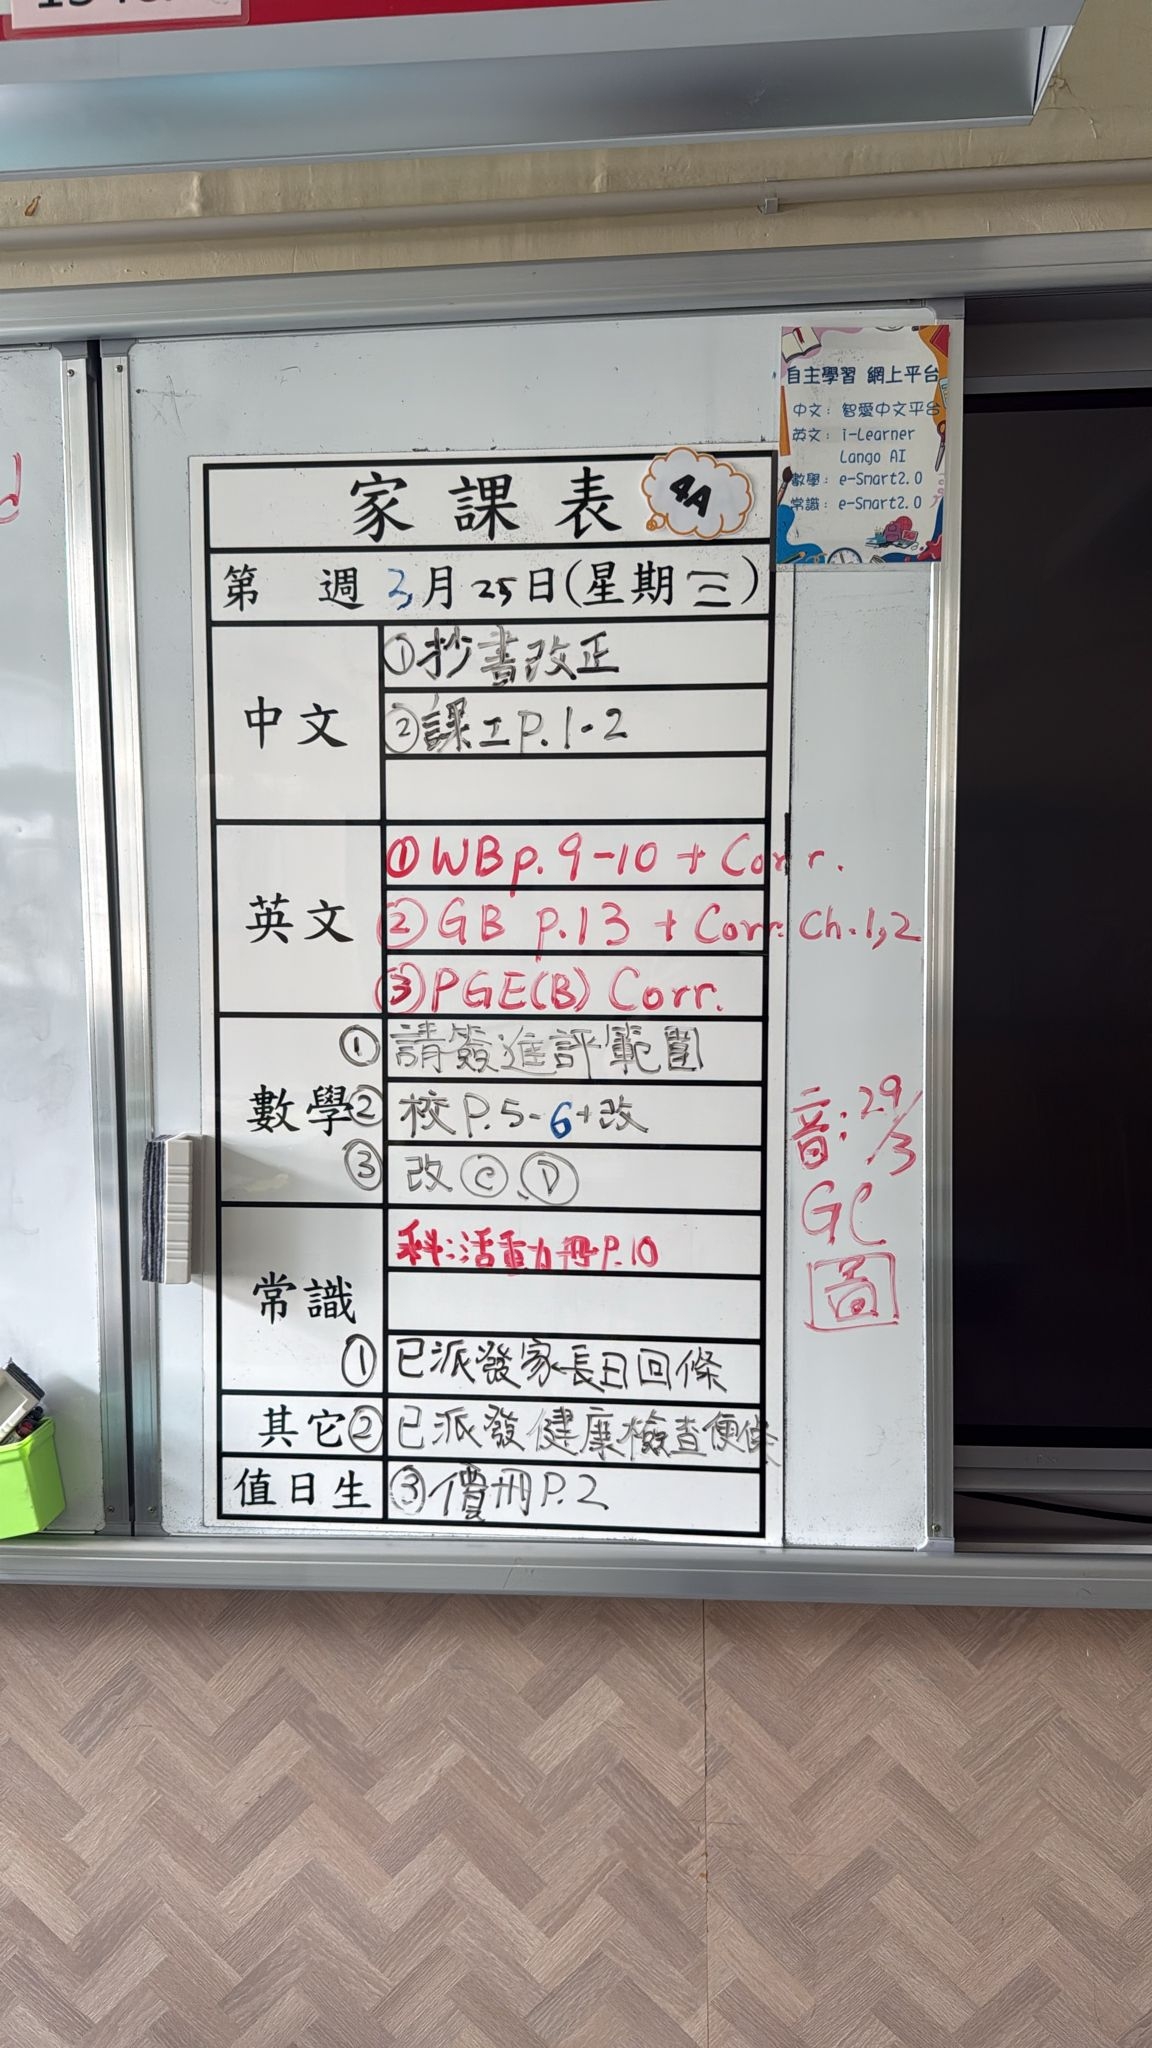 自主學習 網上平台
中文：智愛中文平台
英文：i-Learner
Lango AI
數學：e-Smart2.0
常識：e-Smart2.0
家課表 4A
第 週 3月25日(星期三)
中文
①抄書改正
②課工P.1-2
英文
①WB p.9-10 + Corr.
②GB p.13 + Corr. Ch.1,2
③PGE(B) Corr.
數學
①請簽進評範圍
②校P.5-6+改
③改Ⓒ、Ⓓ
常識
科:活動冊P.10
①已派發家長日回條
其它②已派發健康檢查便條
值日生 ③價冊P.2
音:29/3
GC
圖